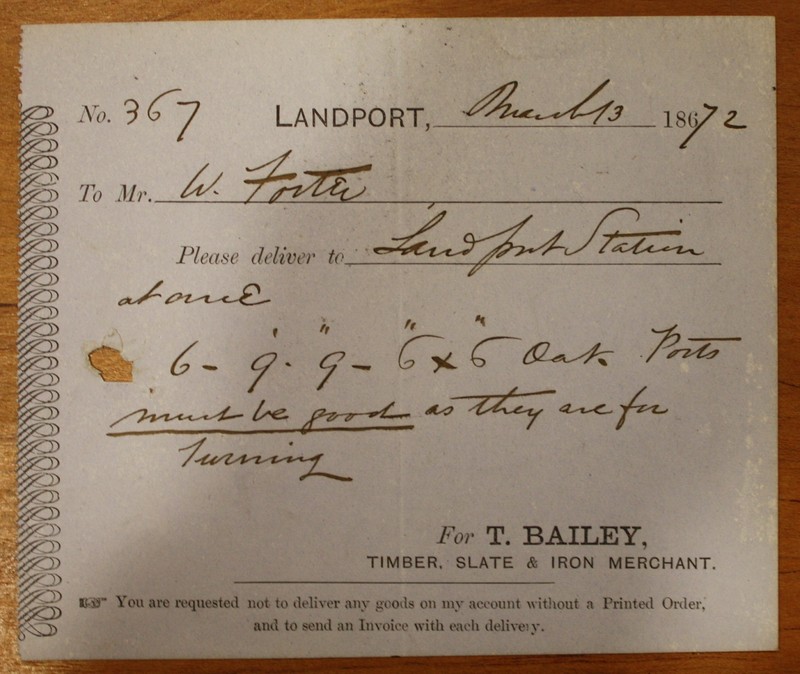 No. 367 LANDPORT, March 13 18672
To Mr. W. Foster
Please deliver to Landport Station
at once
6 - 9' - 9" - 6" x 6" Oak Posts
must be good as they are for
turning
For T. BAILEY,
TIMBER, SLATE & IRON MERCHANT.
☞ You are requested not to deliver any goods on my account without a Printed Order,
and to send an Invoice with each delivery.